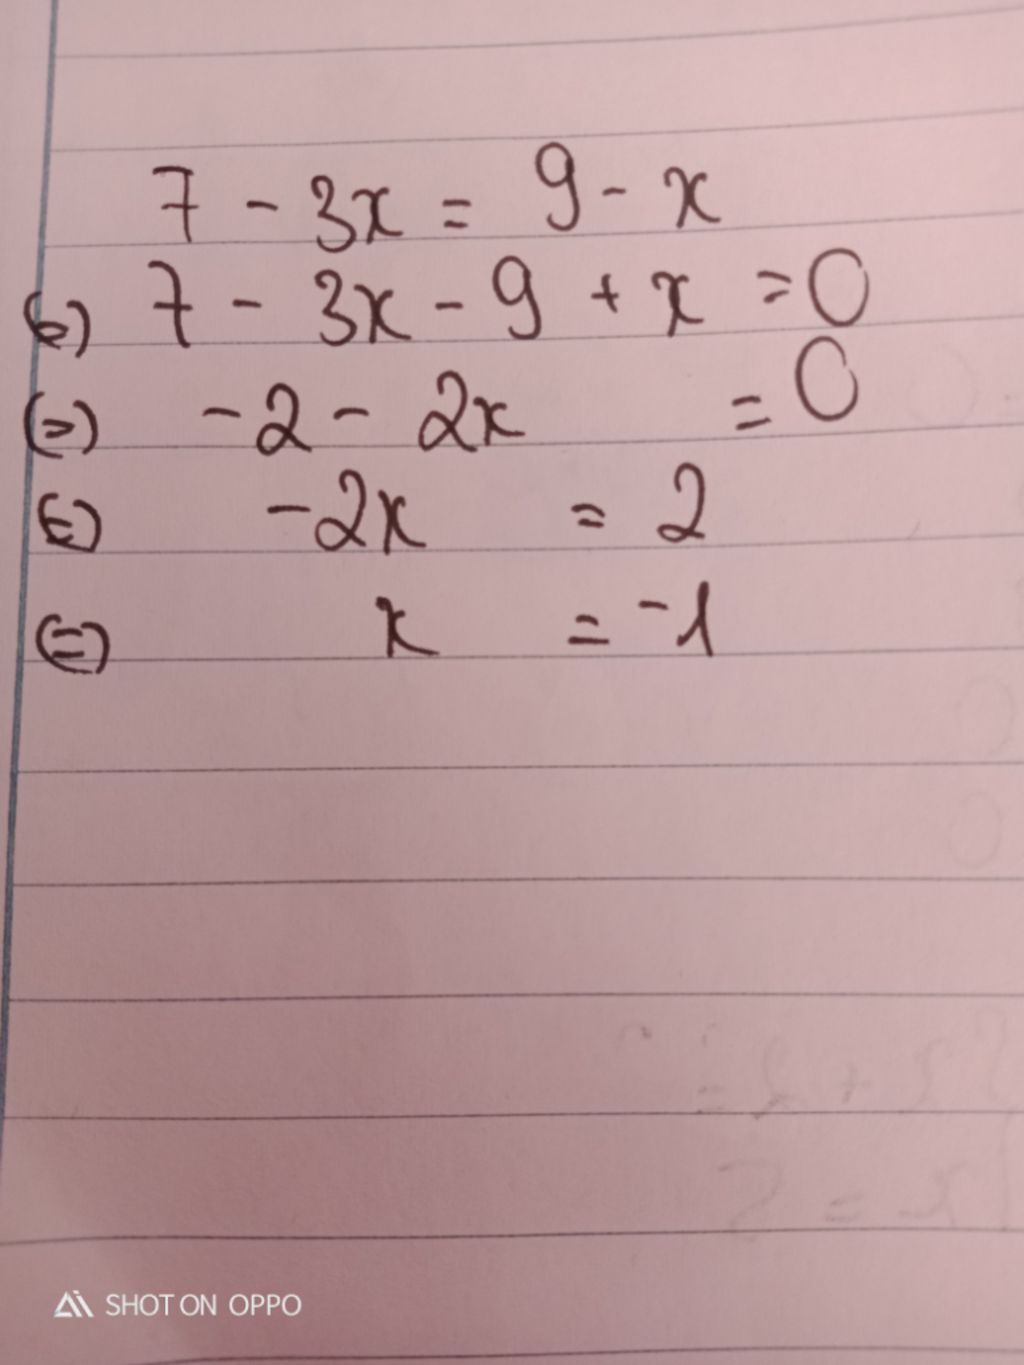 7 - 3x = 9 - x
(=) 7 - 3x - 9 + x = 0
(=) -2 - 2x = 0
(=) -2x = 2
(=) x = -1
SHOT ON OPPO